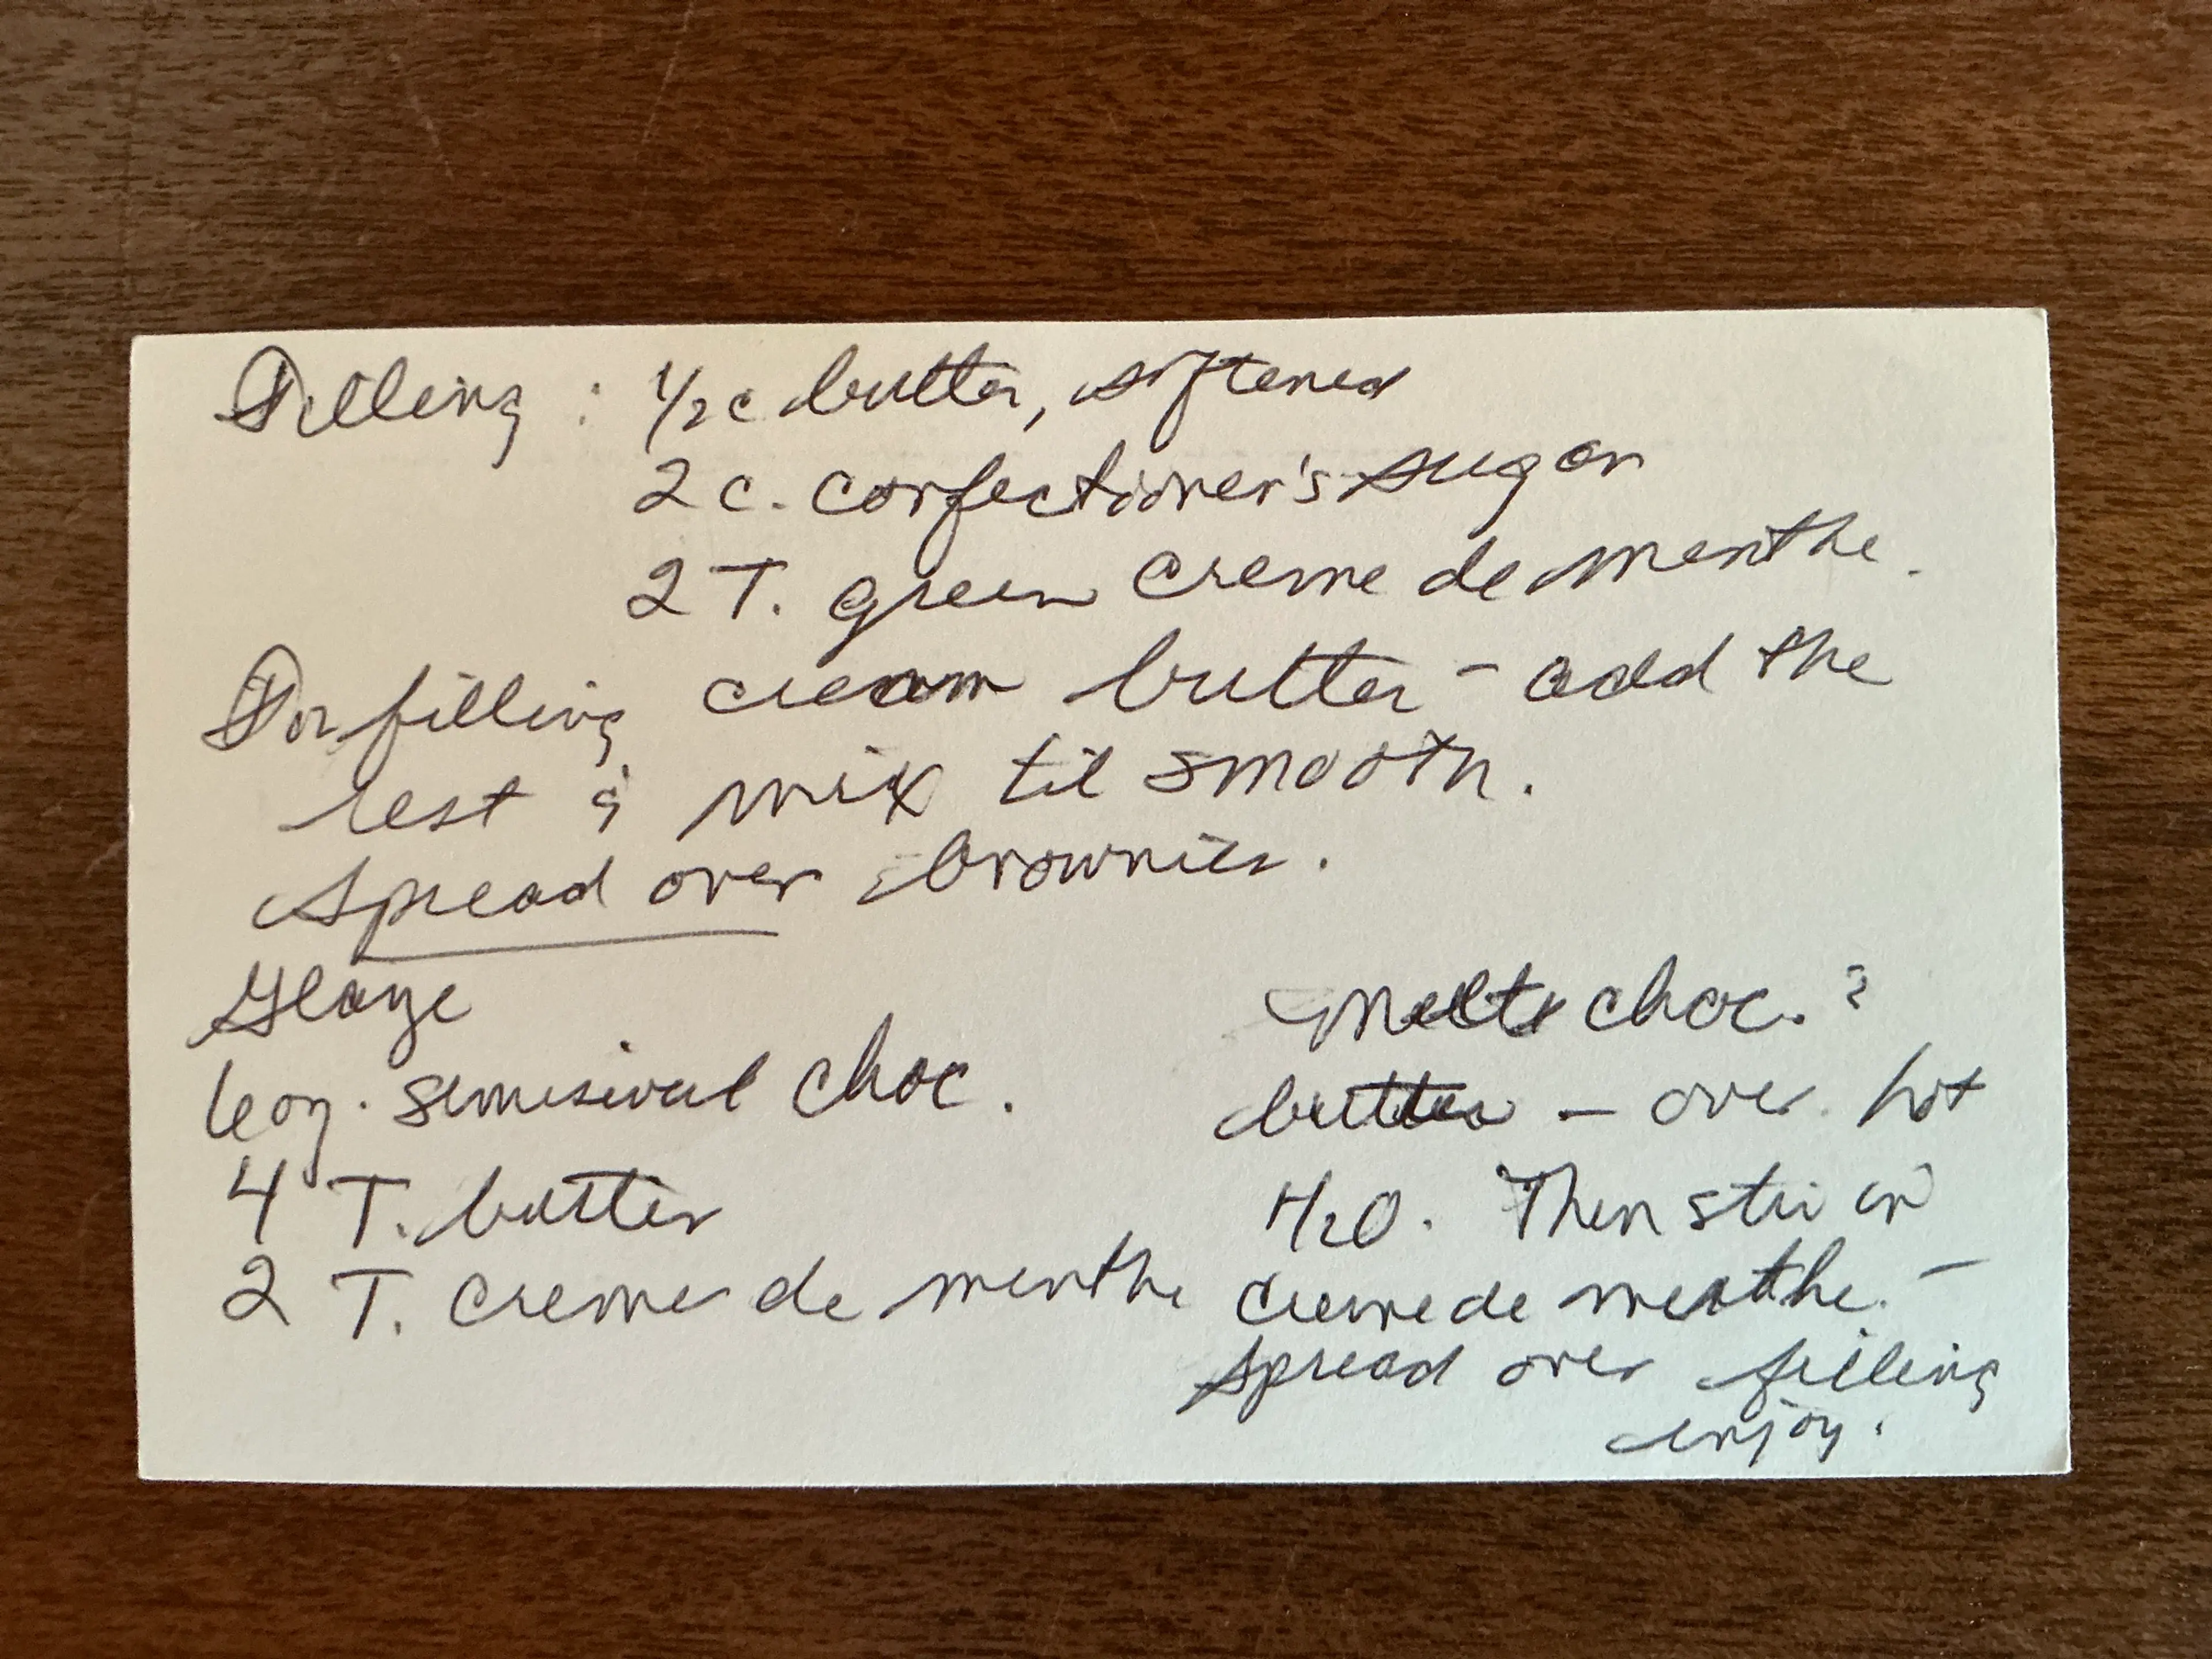 Filling : 1/2 c butter, softened
2 c. confectioner's sugar
2 T. green creme de menthe.
For filling cream butter - add the
rest & mix til smooth.
Spread over brownies.
Glaze
6 oz. semisweet choc.
4 T. butter
2 T. creme de menthe
Melt choc. &
butter - over hot
H2O. Then stir in
creme de menthe. -
spread over filling
enjoy.